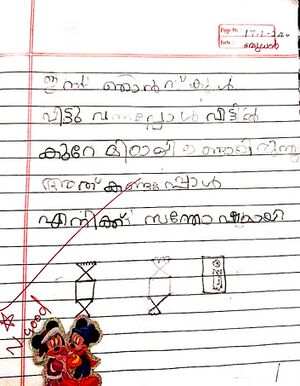 Page No. 17-1-24
Date ബുധൻ
ഇന്ന് ഞാൻ സ്കൂൾ
വിട്ടു വന്നപ്പോൾ വീട്ടിൽ
കുറേ മിഠായി ഉണ്ടായിരുന്നു
അത് കണ്ടപ്പോൾ
എനിക്ക് സന്തോഷമായി
V. good